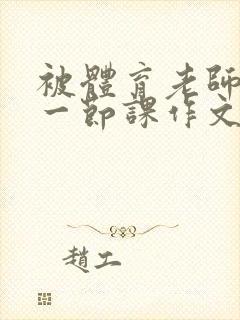 被體育老師
一節課作文
趙工